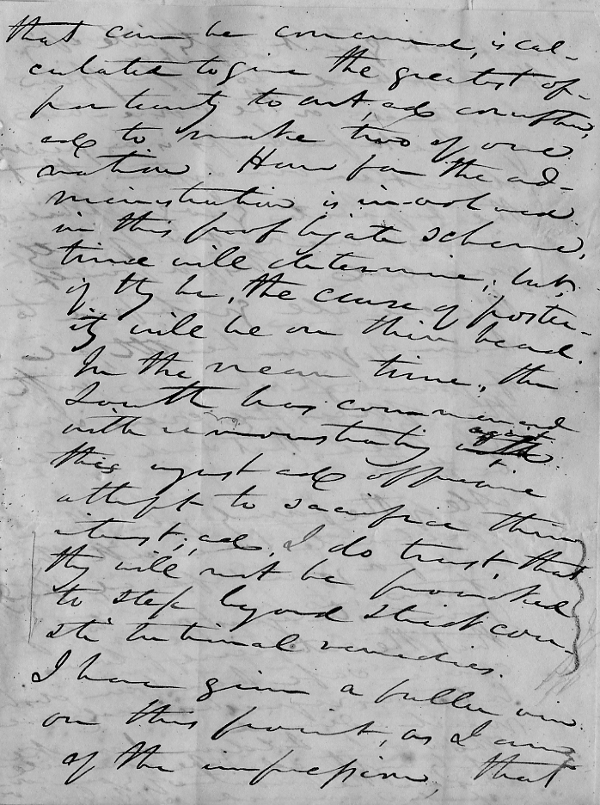 that can be conceived, is cal-
culated to give the greatest op-
portunity to art, and corruption,
and to make two of one
nation. How far the ad-
ministration is involved
in this profligate scheme,
time will determine; but,
if they be, the curse of poster-
ity will be on their head.
In the mean time, the
South has commenced
with remonstrating against
this unjust and oppressive
attempt to sacrifice their
interest; and, I do trust, that
they will not be provoked
to step beyond strict con-
stitutional remedies.
I have given a fuller view
on this point, as I am
of the impression, that